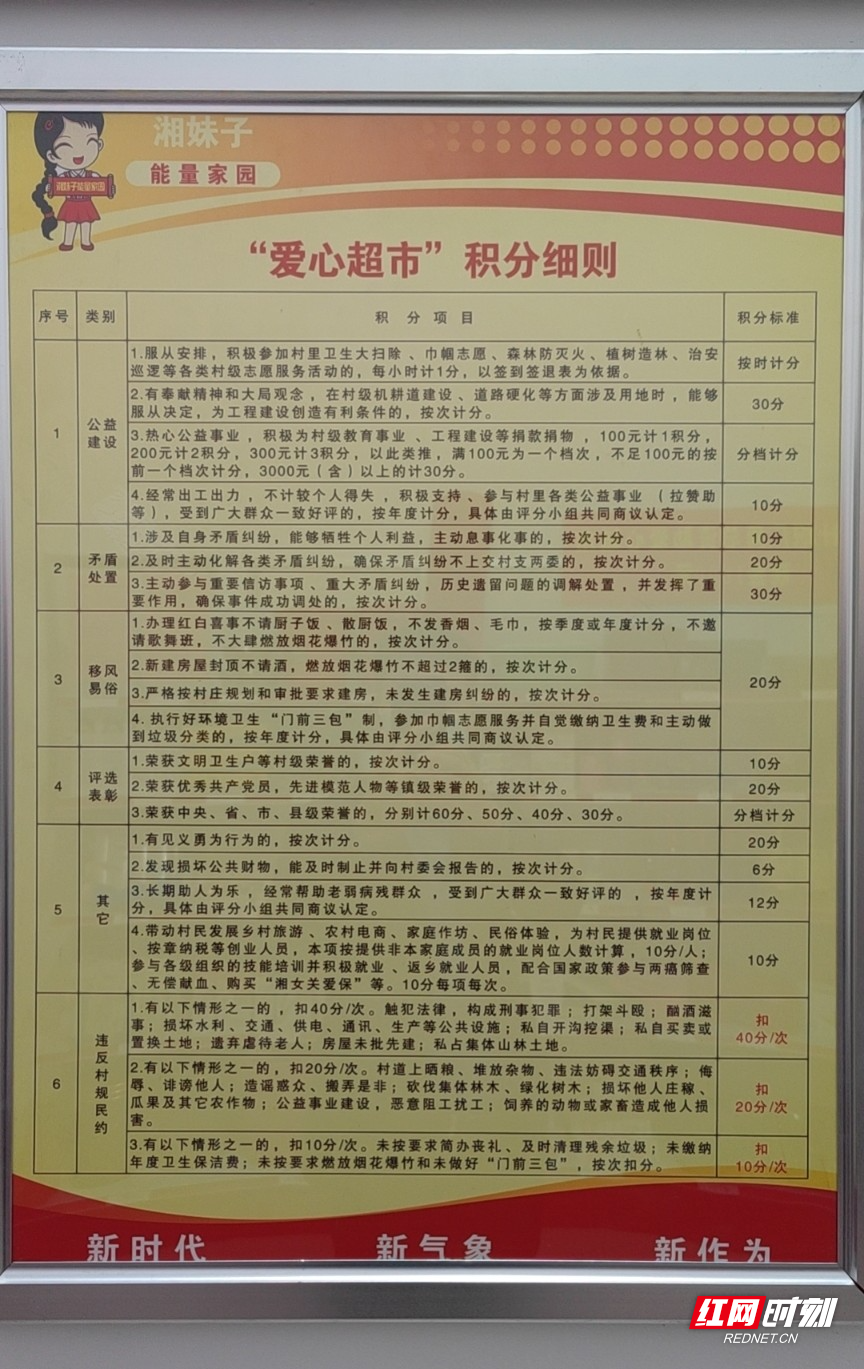 湘妹子
能量家园
湘妹子能量家园
“爱心超市”积分细则
序号 类别 积 分 项 目 积分标准
1 公益建设
1.服从安排，积极参加村里卫生大扫除、巾帼志愿、森林防灭火、植树造林、治安
巡逻等各类村级志愿服务活动的，每小时计1分，以签到签退表为依据。
按时计分
2.有奉献精神和大局观念，在村级机耕道建设、道路硬化等方面涉及用地时，能够
服从决定，为工程建设创造有利条件的，按次计分。
30分
3.热心公益事业，积极为村级教育事业、工程建设等捐款捐物，100元计1积分，
200元计2积分，300元计3积分，以此类推，满100元为一个档次，不足100元的按
前一个档次计分，3000元（含）以上的计30分。
分档计分
4.经常出工出力，不计较个人得失，积极支持、参与村里各类公益事业（拉赞助
等），受到广大群众一致好评的，按年度计分，具体由评分小组共同商议认定。
10分
2 矛盾处置
1.涉及自身矛盾纠纷，能够牺牲个人利益，主动息事化事的，按次计分。
10分
2.及时主动化解各类矛盾纠纷，确保矛盾纠纷不上交村支两委的，按次计分。
20分
3.主动参与重要信访事项、重大矛盾纠纷，历史遗留问题的调解处置，并发挥了重
要作用，确保事件成功调处的，按次计分。
30分
3 移风易俗
1.办理红白喜事不请厨子饭、散厨饭，不发香烟、毛巾，按季度或年度计分，不邀
请歌舞班，不大肆燃放烟花爆竹的，按次计分。
2.新建房屋封顶不请酒，燃放烟花爆竹不超过2箍的，按次计分。
3.严格按村庄规划和审批要求建房，未发生建房纠纷的，按次计分。
4.执行好环境卫生“门前三包”制，参加巾帼志愿服务并自觉缴纳卫生费和主动做
到垃圾分类的，按年度计分，具体由评分小组共同商议认定。
20分
4 评选表彰
1.荣获文明卫生户等村级荣誉的，按次计分。
10分
2.荣获优秀共产党员，先进模范人物等镇级荣誉的，按次计分。
20分
3.荣获中央、省、市、县级荣誉的，分别计60分、50分、40分、30分。
分档计分
5 其它
1.有见义勇为行为的，按次计分。
20分
2.发现损坏公共财物，能及时制止并向村委会报告的，按次计分。
6分
3.长期助人为乐，经常帮助老弱病残群众，受到广大群众一致好评的，按年度计
分，具体由评分小组共同商议认定。
12分
4.带动村民发展乡村旅游、农村电商、家庭作坊、民俗体验，为村民提供就业岗位
、按章纳税等创业人员，本项按提供非本家庭成员的就业岗位人数计算，10分/人；
参与各级组织的技能培训并积极就业、返乡就业人员，配合国家政策参与两癌筛查
、无偿献血、购买“湘女关爱保”等。10分每项每次。
10分
6 违反村规民约
1.有以下情形之一的，扣40分/次。触犯法律，构成刑事犯罪；打架斗殴；酗酒滋
事；损坏水利、交通、供电、通讯、生产等公共设施；私自开沟挖渠；私自买卖或
置换土地；遗弃虐待老人；房屋未批先建；私占集体山林土地。
扣
40分/次
2.有以下情形之一的，扣20分/次。村道上晒粮、堆放杂物、违法妨碍交通秩序；侮
辱、诽谤他人；造谣惑众、搬弄是非；砍伐集体林木、绿化树木；损坏他人庄稼、
瓜果及其它农作物；公益事业建设，恶意阻工扰工；饲养的动物或家畜造成他人损
害。
扣
20分/次
3.有以下情形之一的，扣10分/次。未按要求简办丧礼、及时清理残余垃圾；未缴纳
年度卫生保洁费；未按要求燃放烟花爆竹和未做好“门前三包”，按次扣分。
扣
10分/次
新时代 新气象 新作为
红网时刻
REDNET.CN